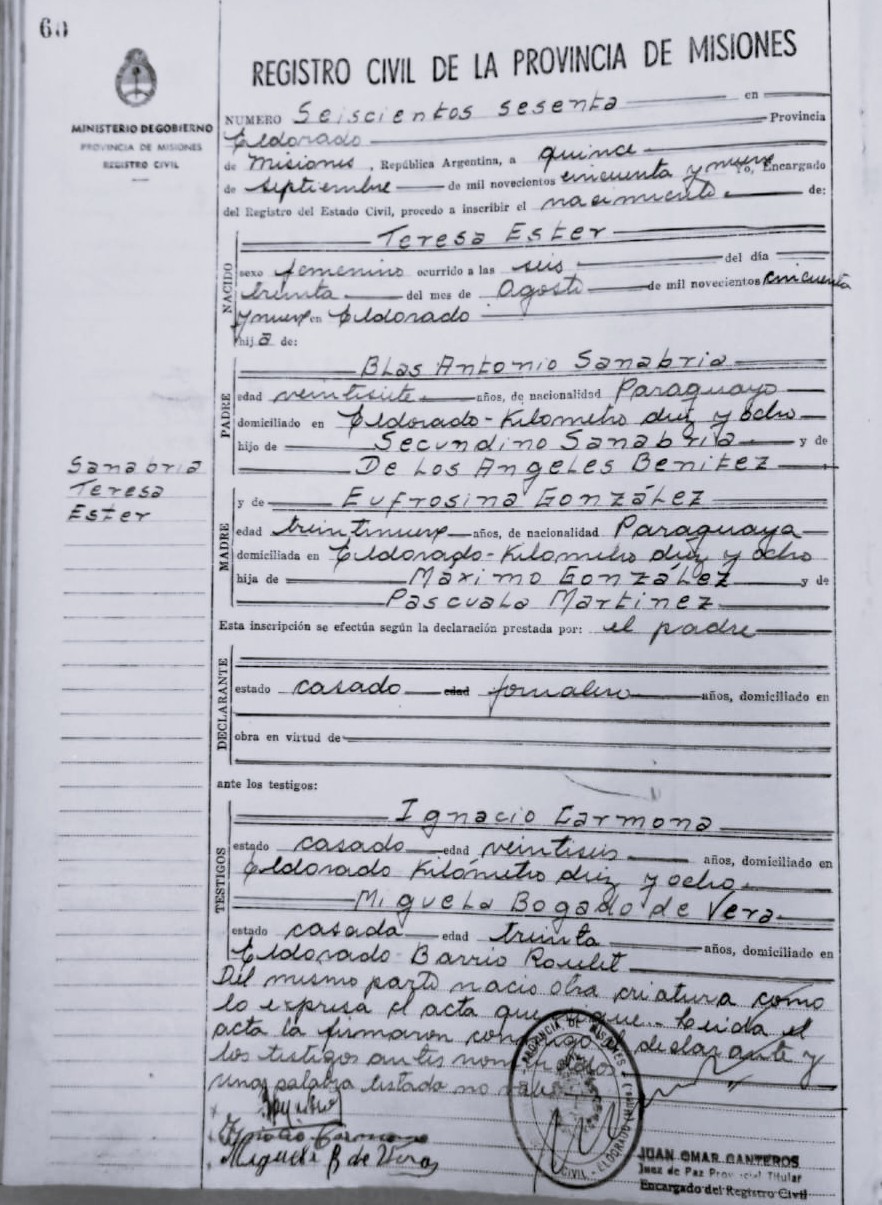 60
REGISTRO CIVIL DE LA PROVINCIA DE MISIONES
MINISTERIO DE GOBIERNO
PROVINCIA DE MISIONES
REGISTRO CIVIL
NUMERO Seiscientos sesenta en
Eldorado Provincia
de Misiones, República Argentina, a quince
de septiembre de mil novecientos cincuenta y nueve Yo, Encargado
del Registro del Estado Civil, procedo a inscribir el nacimiento de:
NACIDO
Teresa Ester
sexo femenino ocurrido a las seis del día
treinta del mes de Agosto de mil novecientos cincuenta
y nueve en Eldorado
hija de:
PADRE
Blas Antonio Sanabria
edad veintisiete años, de nacionalidad Paraguayo
domiciliado en Eldorado-Kilometro diez y ocho
hijo de Secundino Sanabria y de
De Los Angeles Benitez
Sanabria
Teresa
Ester
MADRE
y de Eufrosina González
edad treintinueve años, de nacionalidad Paraguaya
domiciliada en Eldorado-Kilometro diez y ocho
hija de Máximo González y de
Pascuala Martinez
Esta inscripción se efectúa según la declaración prestada por: el padre
DECLARANTE
estado casado edad jornalero años, domiciliado en
obra en virtud de
ante los testigos:
TESTIGOS
Ignacio Carmona
estado casado edad veintiseis años, domiciliado en
Eldorado Kilómetro diez y ocho
Miguela Bogado de Vera
estado casada edad treinta años, domiciliado en
Eldorado Barrio Roulet
Del mismo parto nacio otra criatura como
lo expresa el acta que sigue. Leida el
acta la firmaron conmigo el declarante y
los testigos antes nombrados
una palabra testada no vale
Ignacio Carmona
Miguela B de Vera
PROVINCIA DE MISIONES
CIVIL - ELDORADO
JUAN OMAR CANTEROS
Juez de Paz Provincial Titular
Encargado del Registro Civil